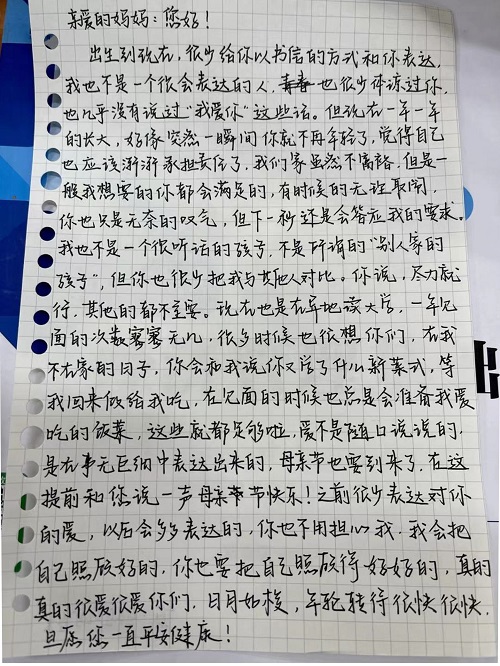 亲爱的妈妈：您好！
出生到现在，很少给你以书信的方式和你表达，
我也不是一个很会表达的人，也很少体谅过你，
也几乎没有说过“我爱你”这些话。但现在一年一年
的长大，好像突然一瞬间你就不再年轻了，觉得自己
也应该渐渐承担责任了，我们家虽然不富裕。但是一
般我想要的你都会满足的，有时候的无理取闹，
你也只是无奈的叹气，但下一秒还是会答应我的要求。
我也不是一个很听话的孩子，不是所谓的“别人家的
孩子”，但你也很少把我与其他人对比。你说，尽力就
行，其他的都不重要。现在也是在异地读大学，一年见
面的次数寥寥无几，很多时候也很想你们，在我
不在家的日子，你会和我说你又学了什么新菜式，等
我回来做给我吃，在见面的时候也总是会准备我爱
吃的饭菜，这些就都足够啦，爱不是随口说说的，
是在事无巨细中表达出来的，母亲节也要到来了，在这
提前和您说一声母亲节快乐！之前很少表达对你
的爱，以后会多多表达的，你也不用担心我，我会把
自己照顾好的，你也要把自己照顾得好好的，真的
真的很爱很爱你们，日月如梭，年轮转得很快很快，
旦愿您一直平安健康！